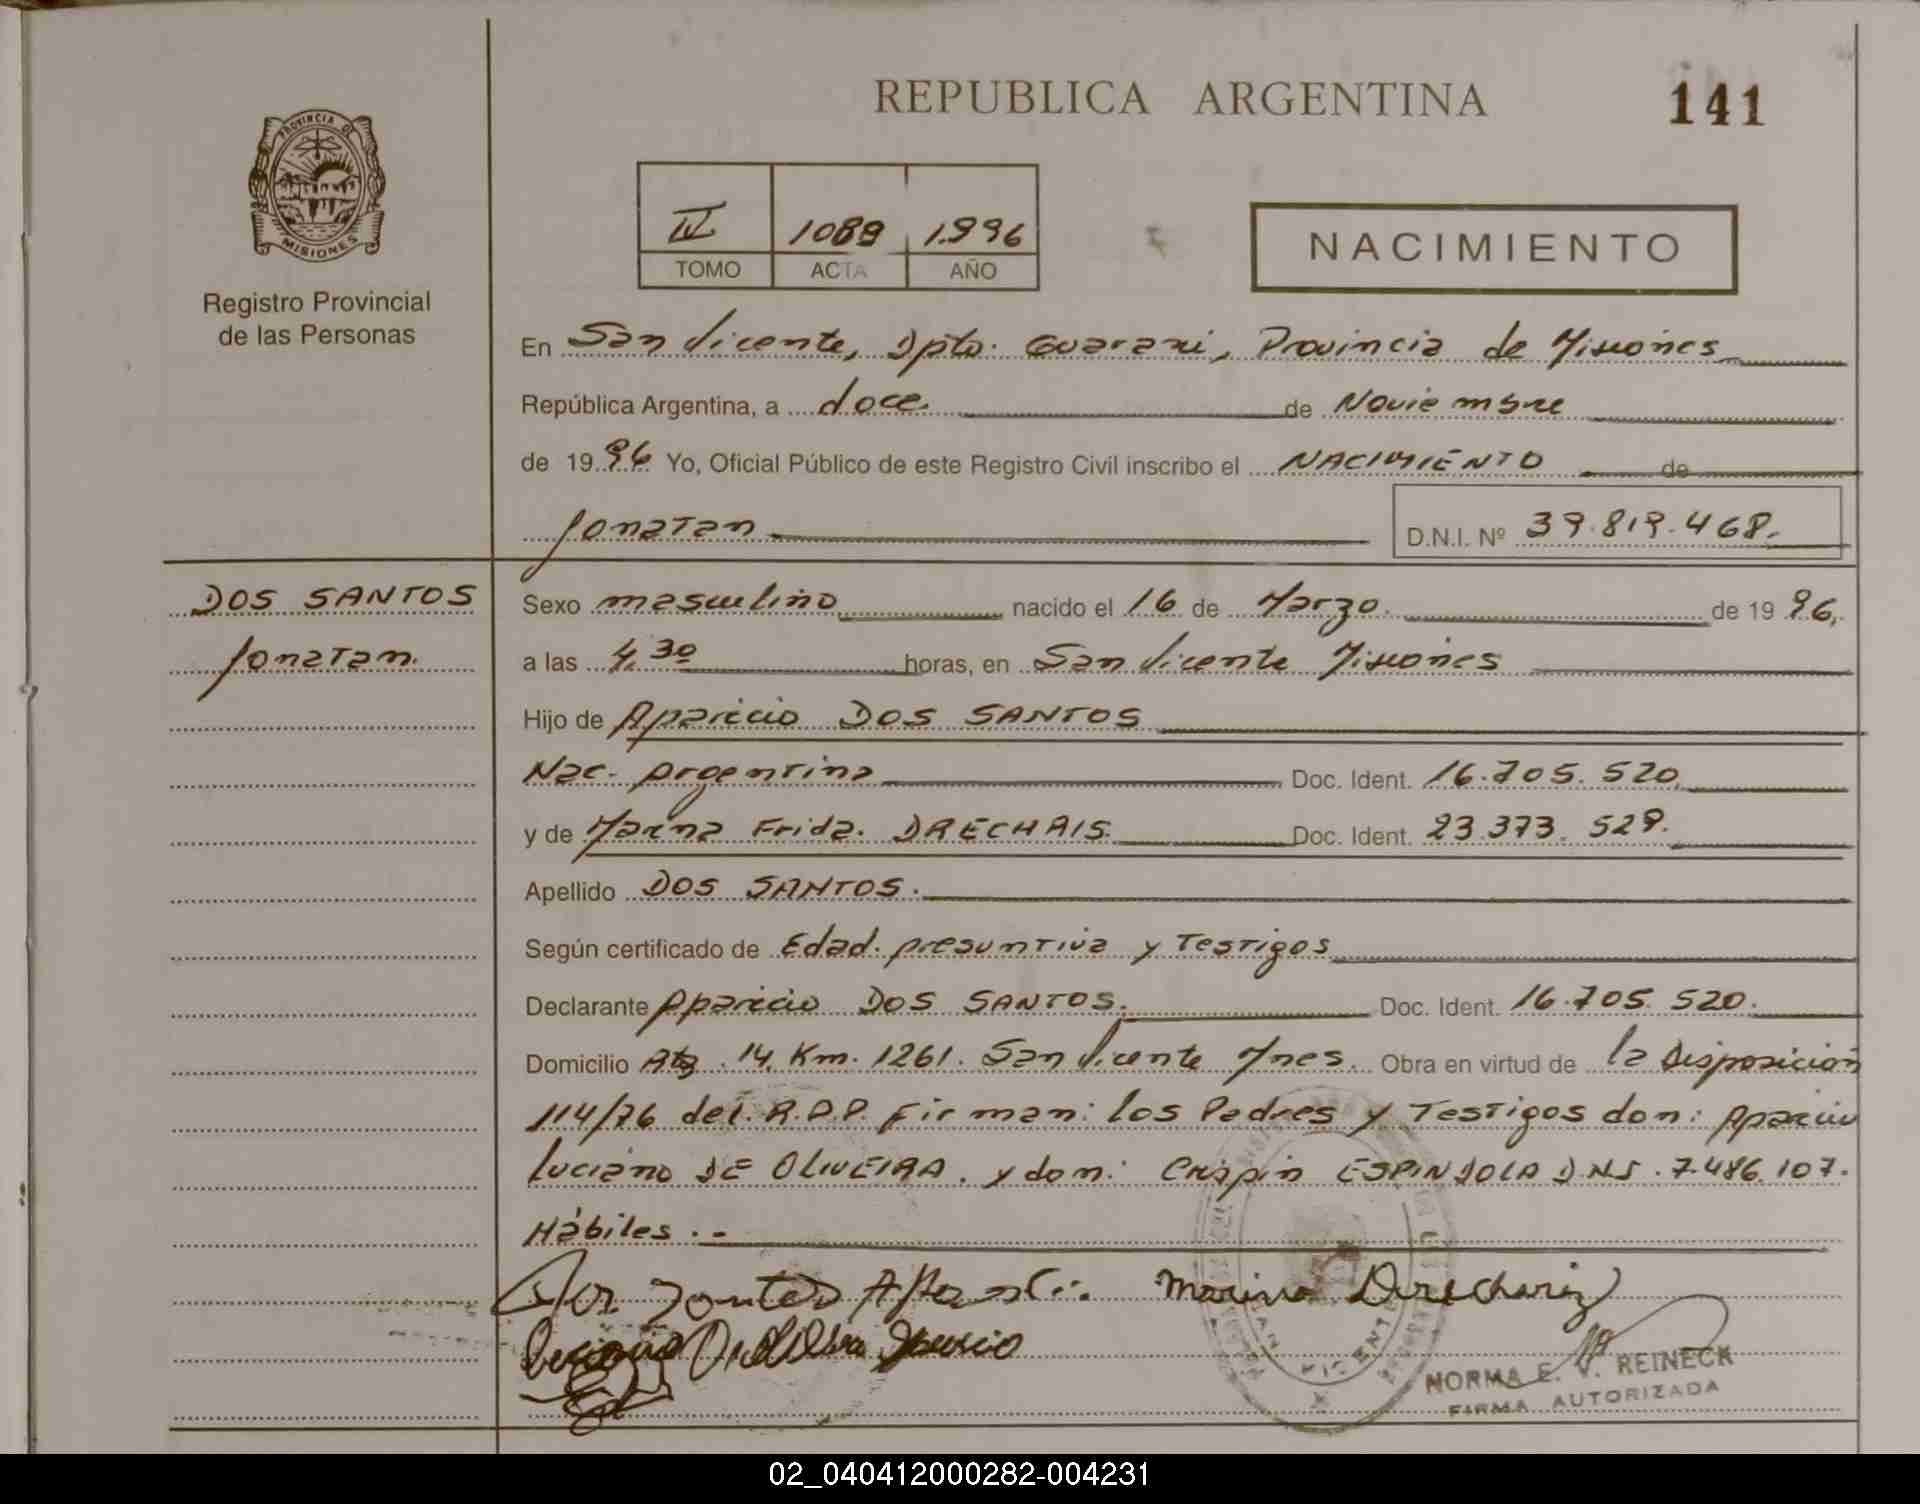 REPUBLICA ARGENTINA
141
PROVINCIA DE
MISIONES
Registro Provincial
de las Personas
IV 1089 1.996
TOMO ACTA AÑO
NACIMIENTO
En San Vicente, Dpto. Guarani, Provincia de Misiones
República Argentina, a doce. de Noviembre
de 1996 Yo, Oficial Público de este Registro Civil inscribo el NACIMIENTO de
Jonatan
D.N.I. Nº 39.819.468.
DOS SANTOS
Jonatan.
Sexo masculino nacido el 16 de Marzo. de 1996,
a las 4,30 horas, en San Vicente Misiones
Hijo de Aparicio DOS SANTOS
Nac. Argentina Doc. Ident. 16.705.520
y de Marina Frida. DRECHAIS. Doc. Ident. 23.373.529.
Apellido DOS SANTOS.
Según certificado de Edad. presuntiva y Testigos
Declarante Aparicio DOS SANTOS. Doc. Ident. 16.705.520.
Domicilio 14. Km. 1261. San Vicente Mnes. Obra en virtud de la Disposición
114/76 del. R.P.P. Firman: los Padres y Testigos don: Aparicio
Luciano DE OLIVEIRA. y don: Crispin ESPINDOLA D.N.I. 7.486.107.
Hábiles.-
Marina Drechariz
SAN VICENTE
NORMA E. V. REINECK
FIRMA AUTORIZADA
02_040412000282-004231